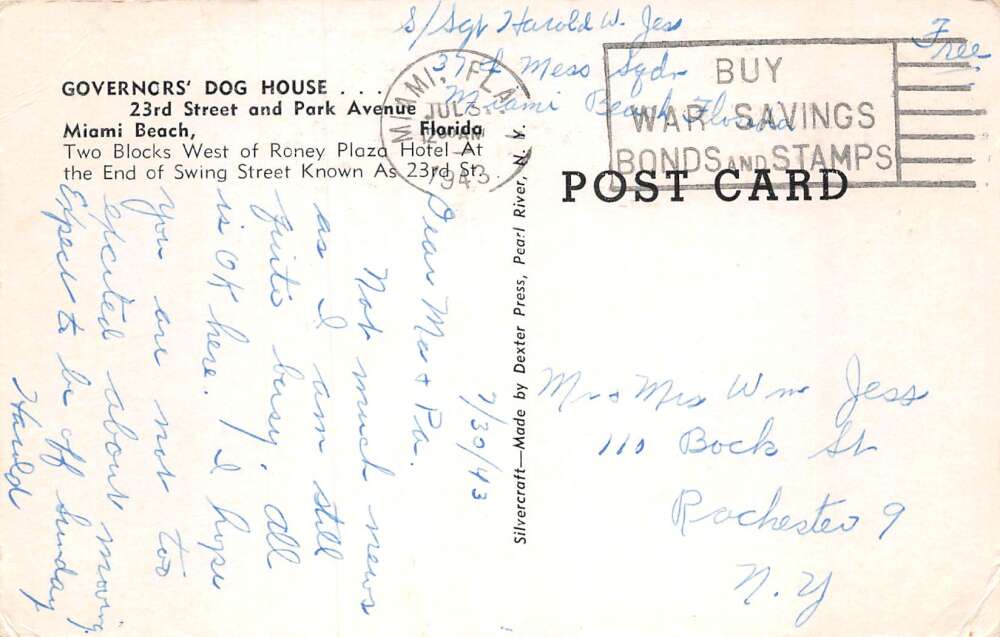 S/Sgt Harold W. Jess
37 Mess Sqdn
Miami Beach Florida
Free
MIAMI, FLA.
JUL 31
AM
1943
BUY
WAR SAVINGS
BONDS AND STAMPS
GOVERNORS' DOG HOUSE . . .
23rd Street and Park Avenue
Miami Beach, Florida
Two Blocks West of Roney Plaza Hotel At
the End of Swing Street Known As 23rd St.
POST CARD
Silvercraft—Made by Dexter Press, Pearl River, N. Y.
7/30/43
Dear Ma & Pa.
Not much news
as I am still
quite busy. All
is OK here. I hope
you are not too
excited about moving.
Expect to be off Sunday
Harold
Mr & Mrs Wm Jess
110 Bock St
Rochester 9
N. Y